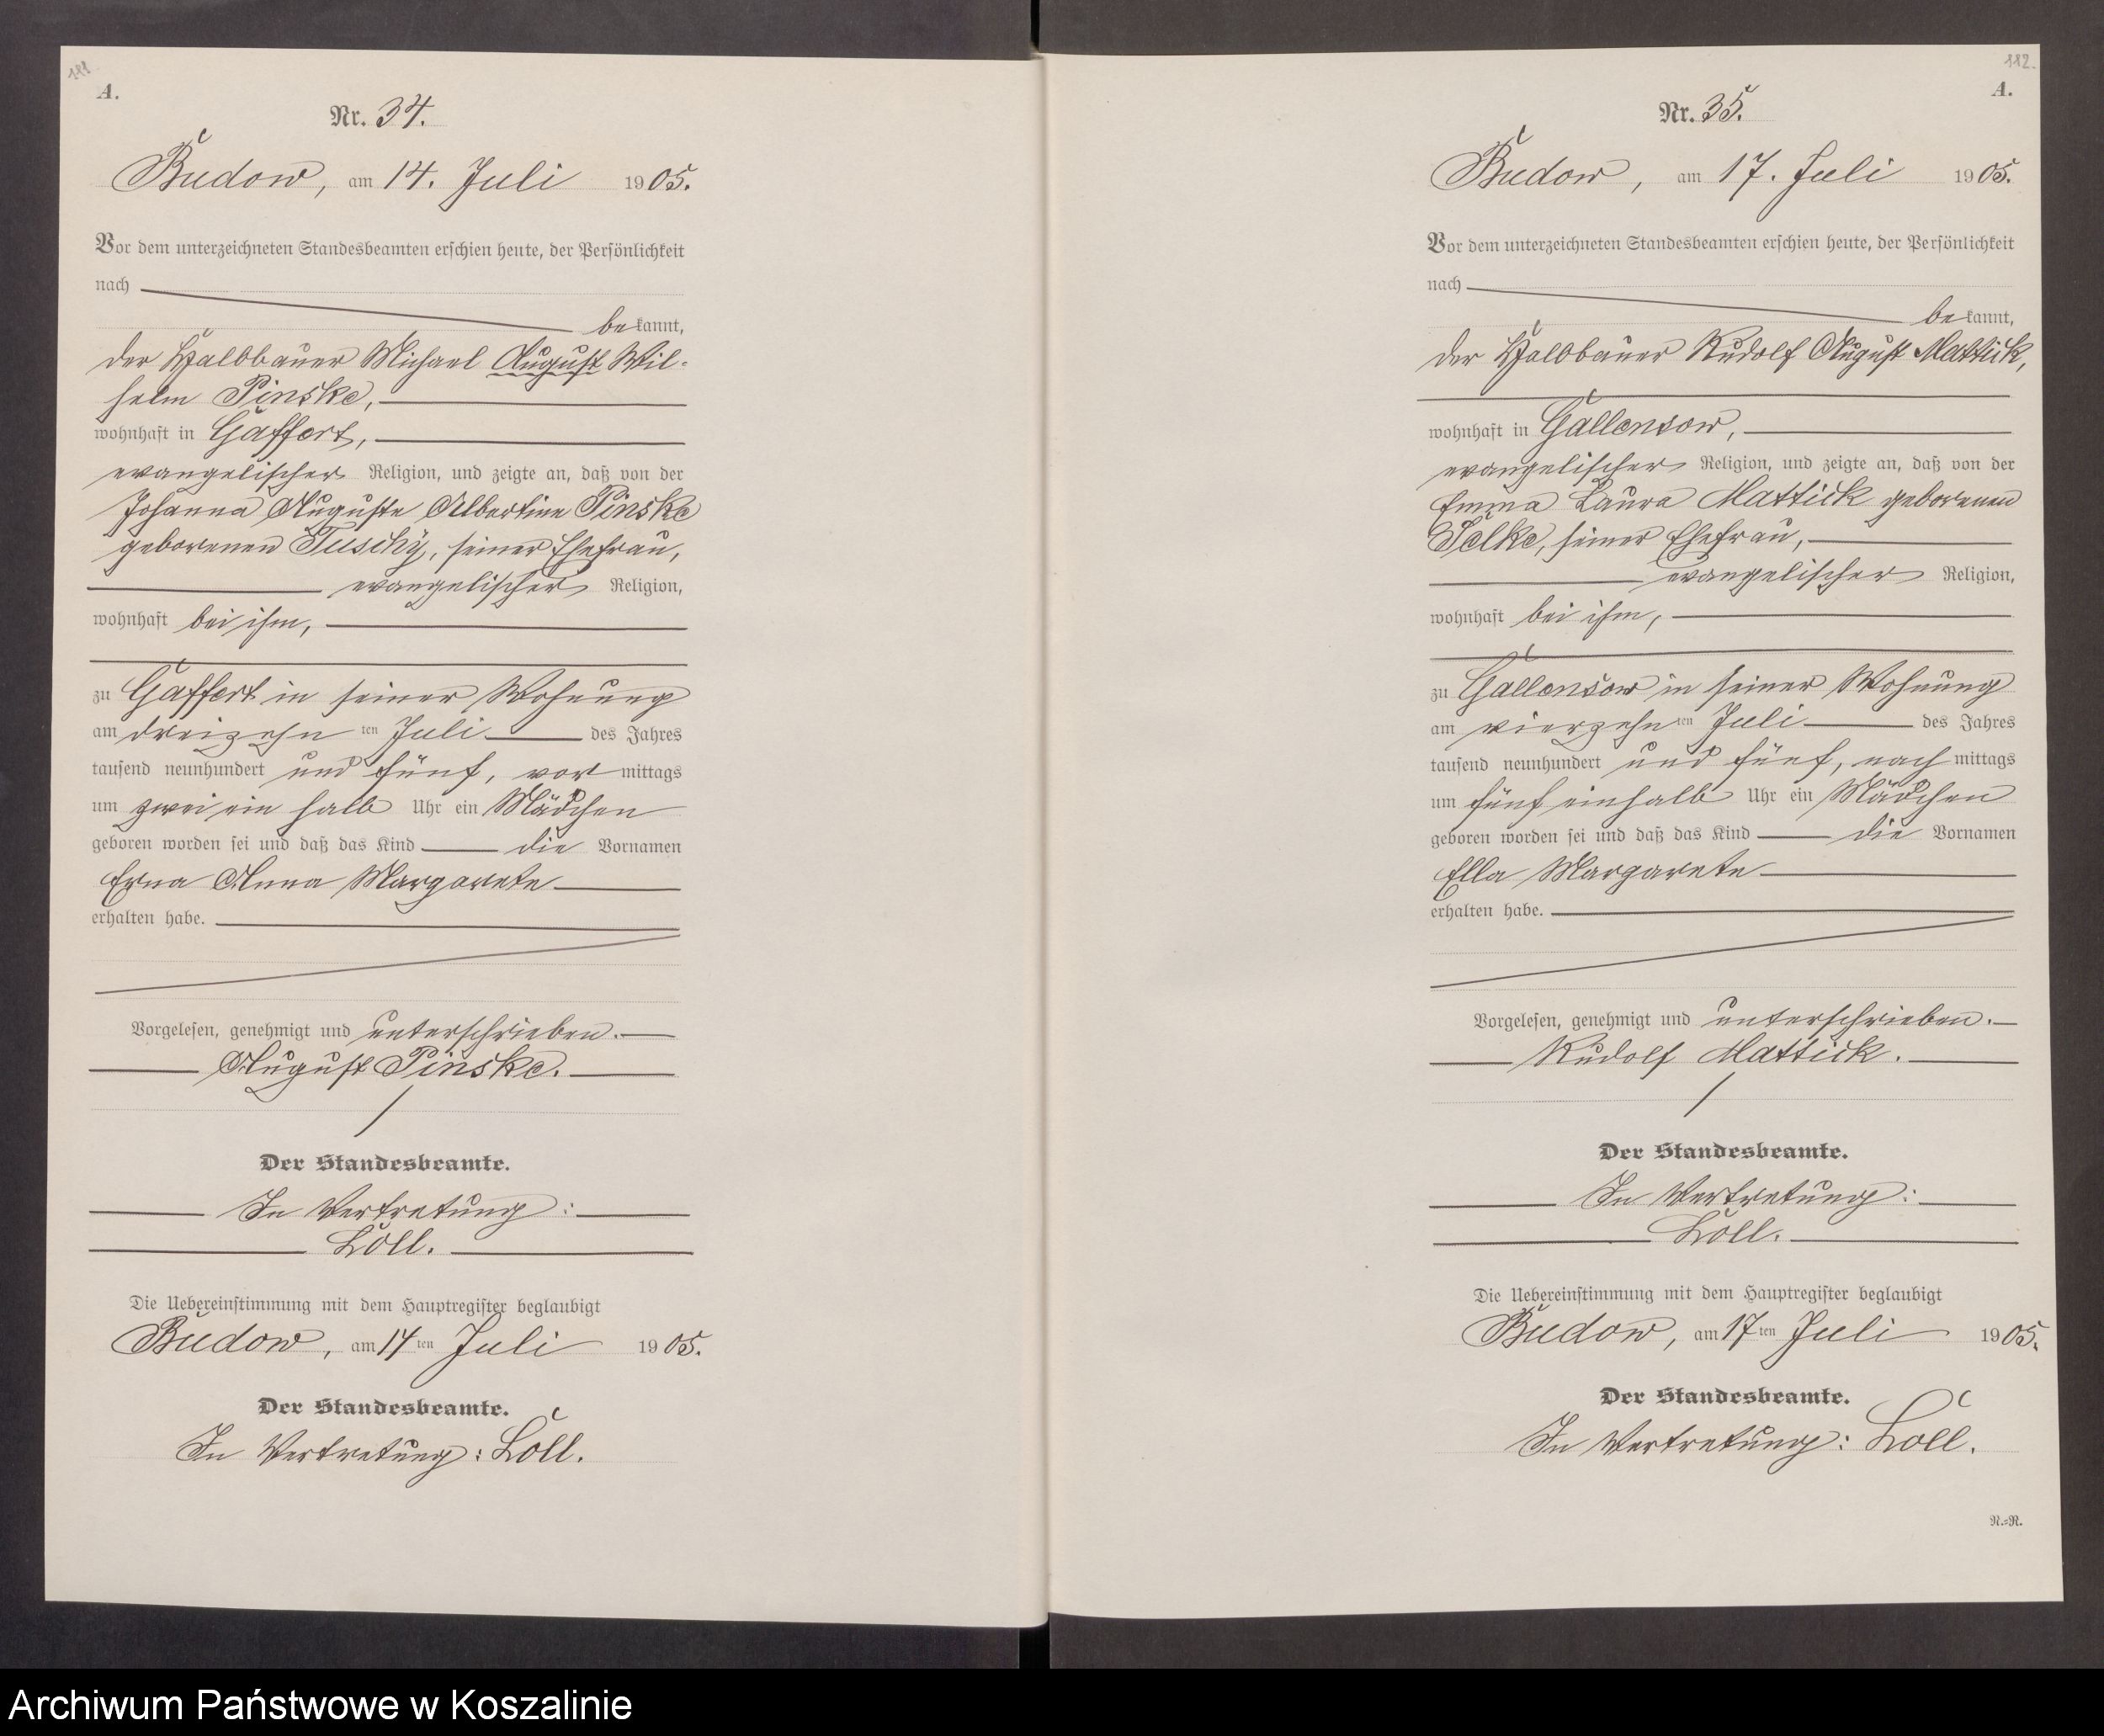 111
A.
Nr. 34.
Budow, am 14. Juli 1905.
Vor dem unterzeichneten Standesbeamten erschien heute, der Persönlichkeit
nach
bekannt,
der Halbbauer Michael August Wil-
helm Pinske,
wohnhaft in Gaffert,
evangelischer Religion, und zeigte an, daß von der
Johanna Auguste Albertine Pinske
geborenen Tuschy, seiner Ehefrau,
evangelischer Religion,
wohnhaft bei ihm,
zu Gaffert in seiner Wohnung
am dreizehnten Juli des Jahres
tausend neunhundert und fünf, vormittags
um zwei ein halb Uhr ein Mädchen
geboren worden sei und daß das Kind die Vornamen
Erna Anna Margarete
erhalten habe.
Vorgelesen, genehmigt und unterschrieben.
August Pinske.
Der Standesbeamte.
In Vertretung:
Löll.
Die Uebereinstimmung mit dem Hauptregister beglaubigt
Budow, am 14ten Juli 1905.
Der Standesbeamte.
In Vertretung: Löll.
112.
A.
Nr. 35.
Budow, am 17. Juli 1905.
Vor dem unterzeichneten Standesbeamten erschien heute, der Persönlichkeit
nach
bekannt,
der Halbbauer Rudolf August Mattick,
wohnhaft in Gallensow,
evangelischer Religion, und zeigte an, daß von der
Emma Laura Mattick geborenen
Selke, seiner Ehefrau,
evangelischer Religion,
wohnhaft bei ihm,
zu Gallensow in seiner Wohnung
am vierzehnten Juli des Jahres
tausend neunhundert und fünf, nachmittags
um fünf einhalb Uhr ein Mädchen
geboren worden sei und daß das Kind die Vornamen
Ella Margarete
erhalten habe.
Vorgelesen, genehmigt und unterschrieben.
Rudolf Mattick.
Der Standesbeamte.
In Vertretung:
Löll.
Die Uebereinstimmung mit dem Hauptregister beglaubigt
Budow, am 17ten Juli 1905.
Der Standesbeamte.
In Vertretung: Löll.
N.=R.
Archiwum Państwowe w Koszalinie